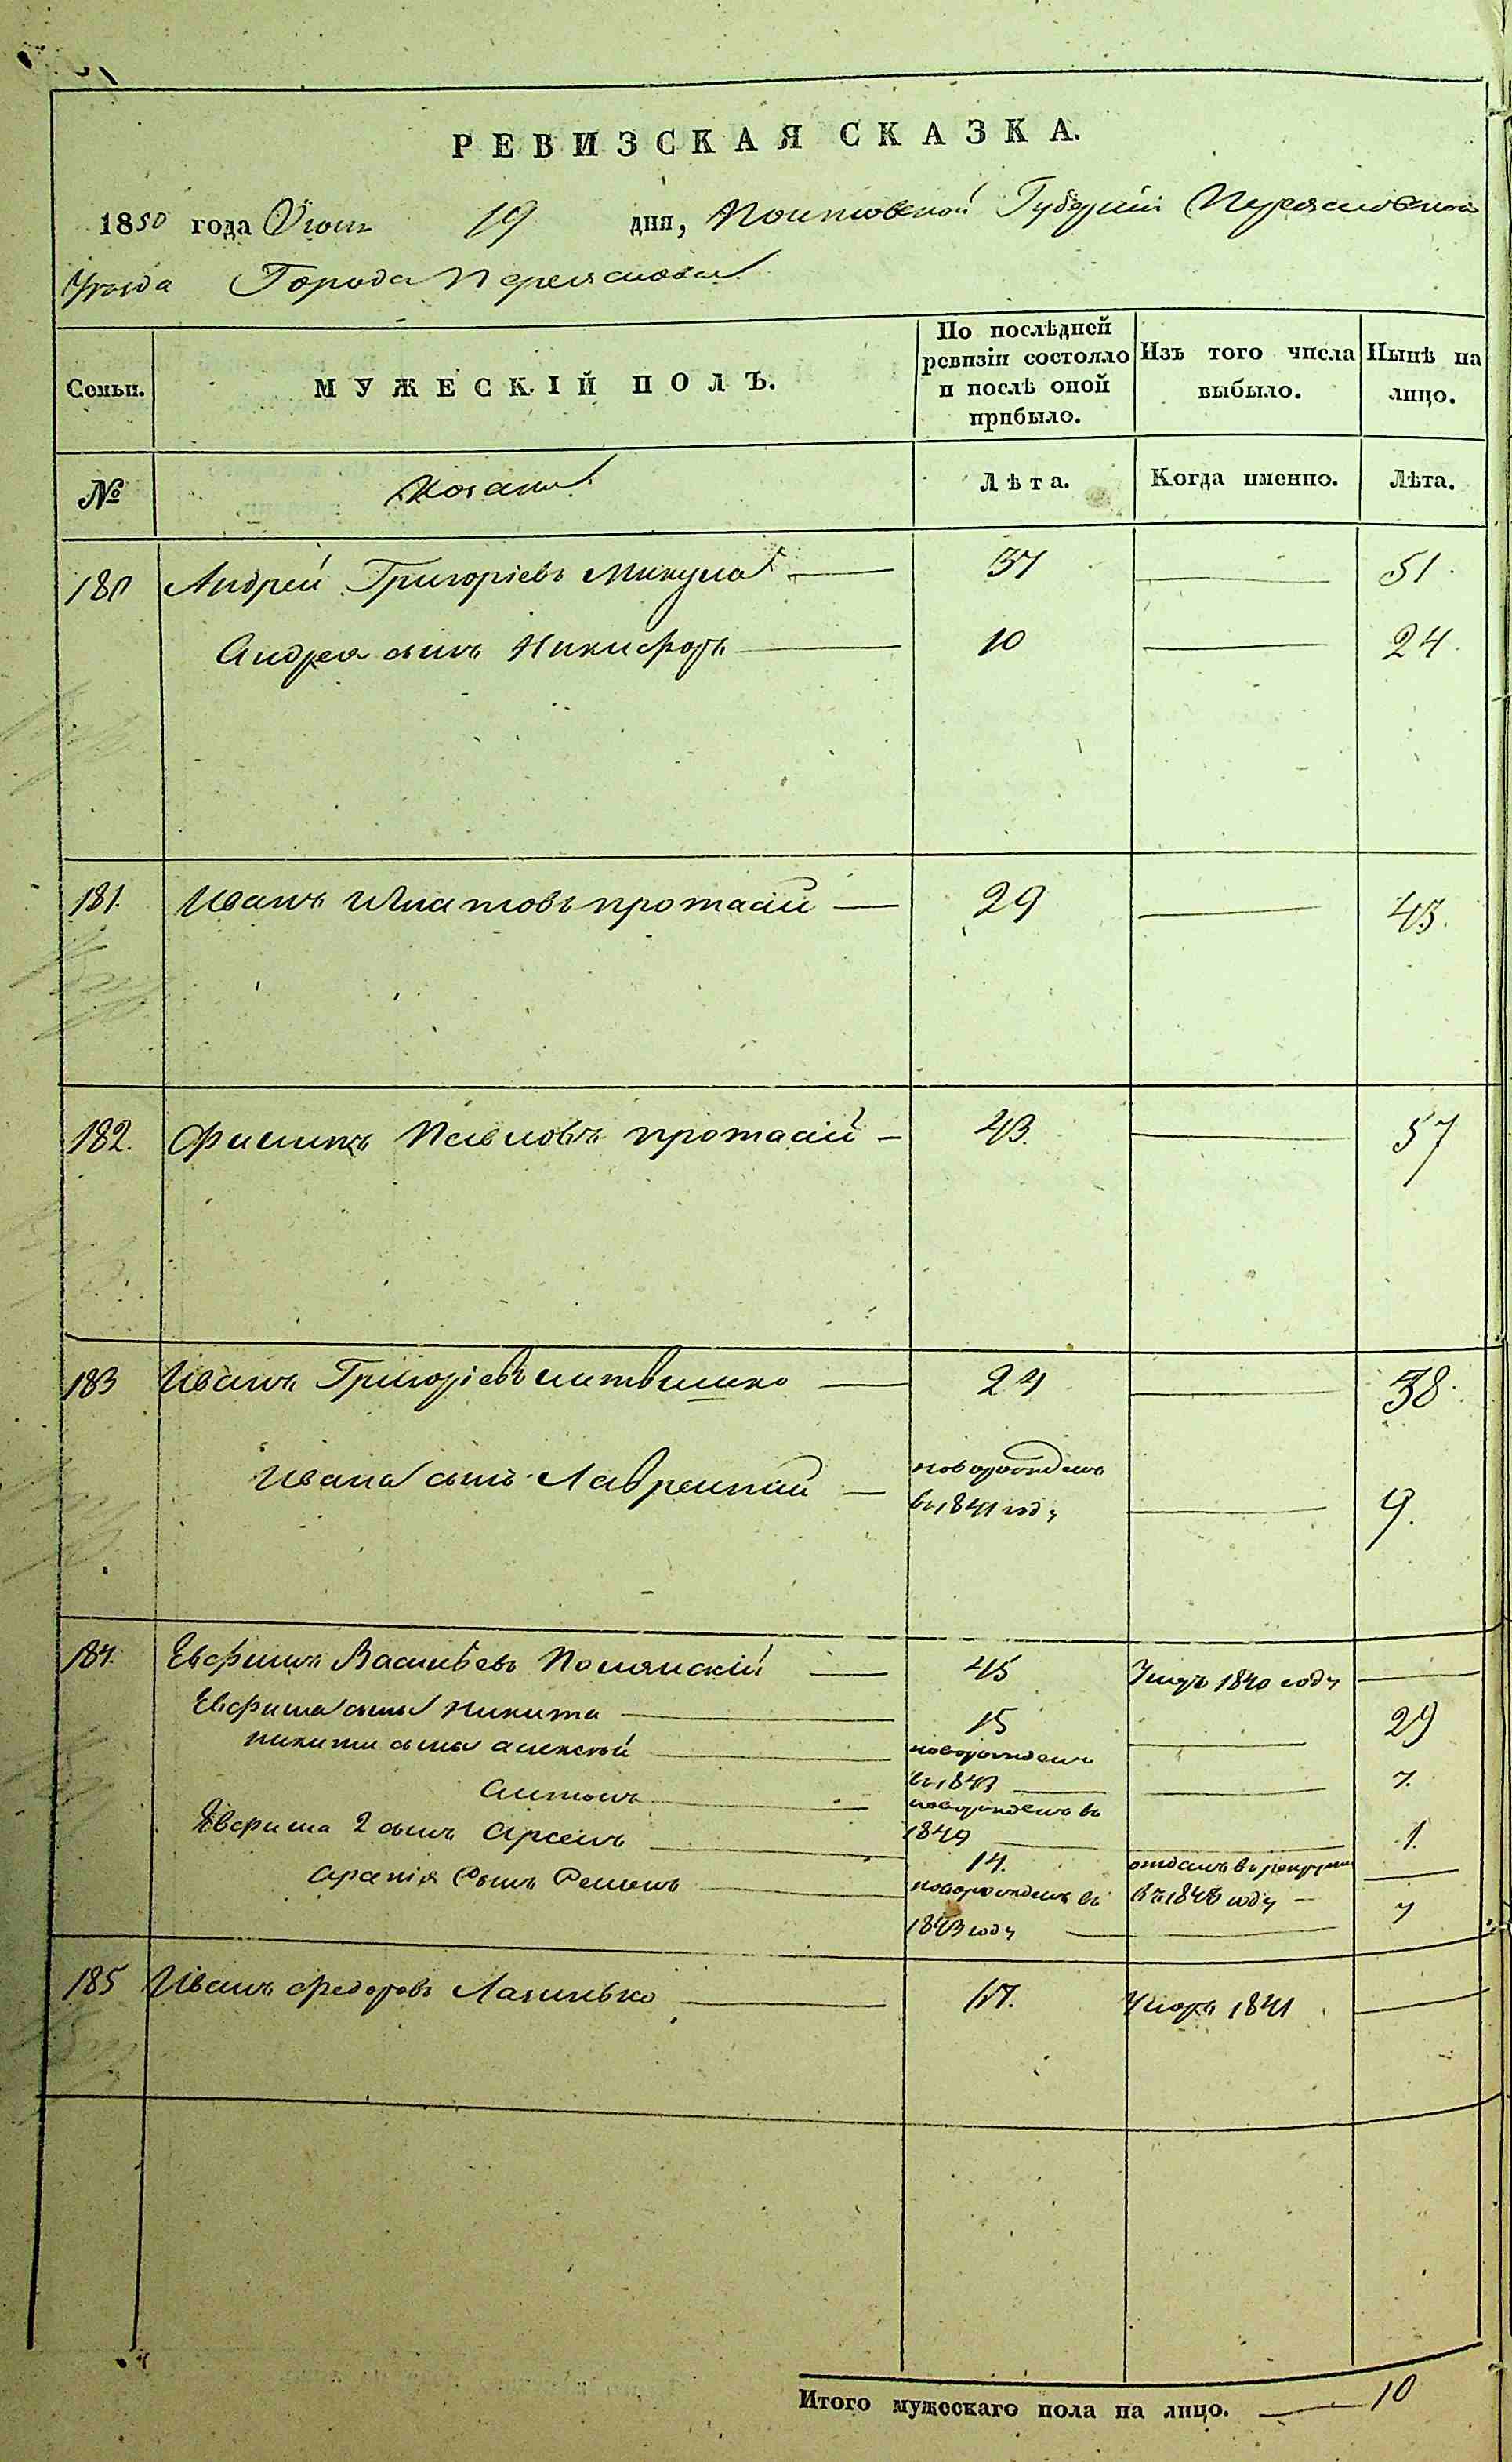 РЕВИЗСКАЯ СКАЗКА.
1850 года 19 дня, Полтавской Губерніи Переяславскаго
Уѣзда Города Переяслава
Семьи. МУЖЕСКІЙ ПОЛЪ. По послѣдней ревизіи состояло и послѣ оной прибыло. Изъ того числа выбыло. Нынѣ на лицо.
№ Козаки Лѣта. Когда именно. Лѣта.
180 Андрей Григоріевъ Микула 37 51.
Андрея сынъ Никифоръ 10 24.
181. Иванъ Игнатовъ протасій 29 43.
182. Филипъ Павловъ протасій 43. 57
183 Иванъ Григоріевъ литвинко 24 38.
Ивана сынъ Лаврентій новорожденъ
въ 1841 году 9.
184. Евфимъ Васильевъ Полянскій 45 Умеръ 1840 году
Евфима сынъ Никита 15 29
Никиты сынъ алексей новорожденъ
въ 1843 7.
антонъ новорожденъ въ
1849 1.
Евфима 2 сынъ Арсенъ 14. отданъ въ рекруты
въ 1840 году
сынъ Семенъ новорожденъ въ
1843 году 7
185 Иванъ Федоровъ 17. Умеръ 1841
Итого мужескаго пола на лицо. 10